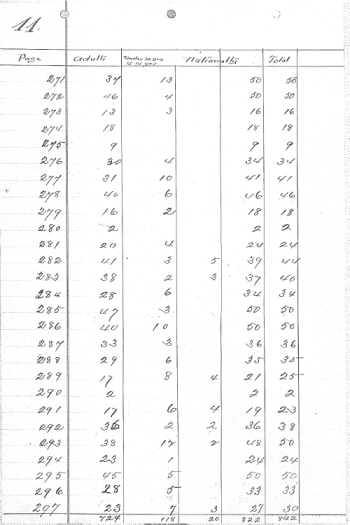 11.
Page Adults Nationality Total
271 37 13 50 50
272 46 4 50 50
273 13 3 16 16
274 18 18 18
275 9 9 9
276 30 4 34 34
277 31 10 41 41
278 40 6 46 46
279 16 2 18 18
280 2 2 2
281 20 4 24 24
282 41 3 5 39 44
283 38 2 3 37 40
284 28 6 34 34
285 47 3 50 50
286 40 10 50 50
287 33 3 36 36
288 29 6 35 35
289 17 8 4 21 25
290 2 2 2
291 17 6 4 19 23
292 36 2 2 36 38
293 38 12 2 48 50
294 23 1 24 24
295 45 5 50 50
296 28 5 33 33
297 23 7 3 27 30
724 118 20 822 842